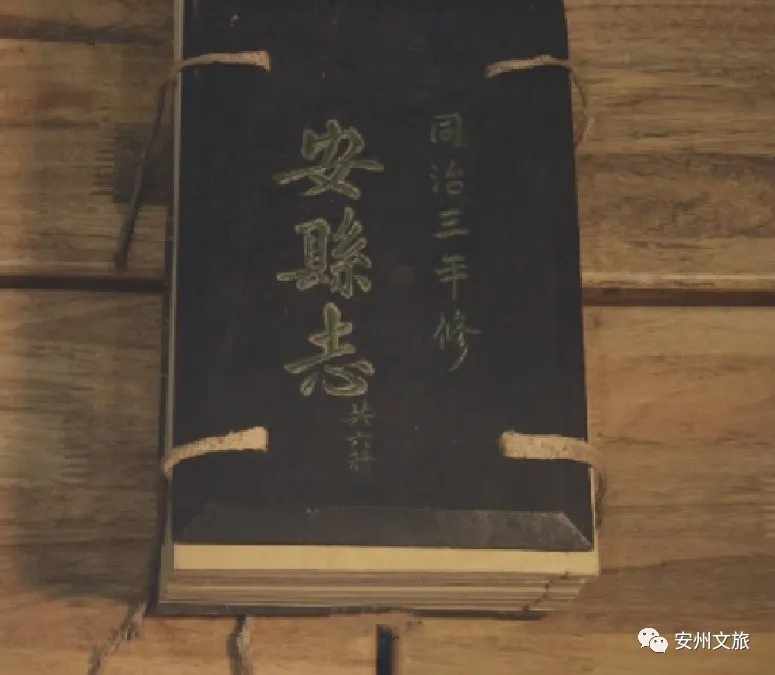 同治三年修
安縣志
共六冊
安州文旅